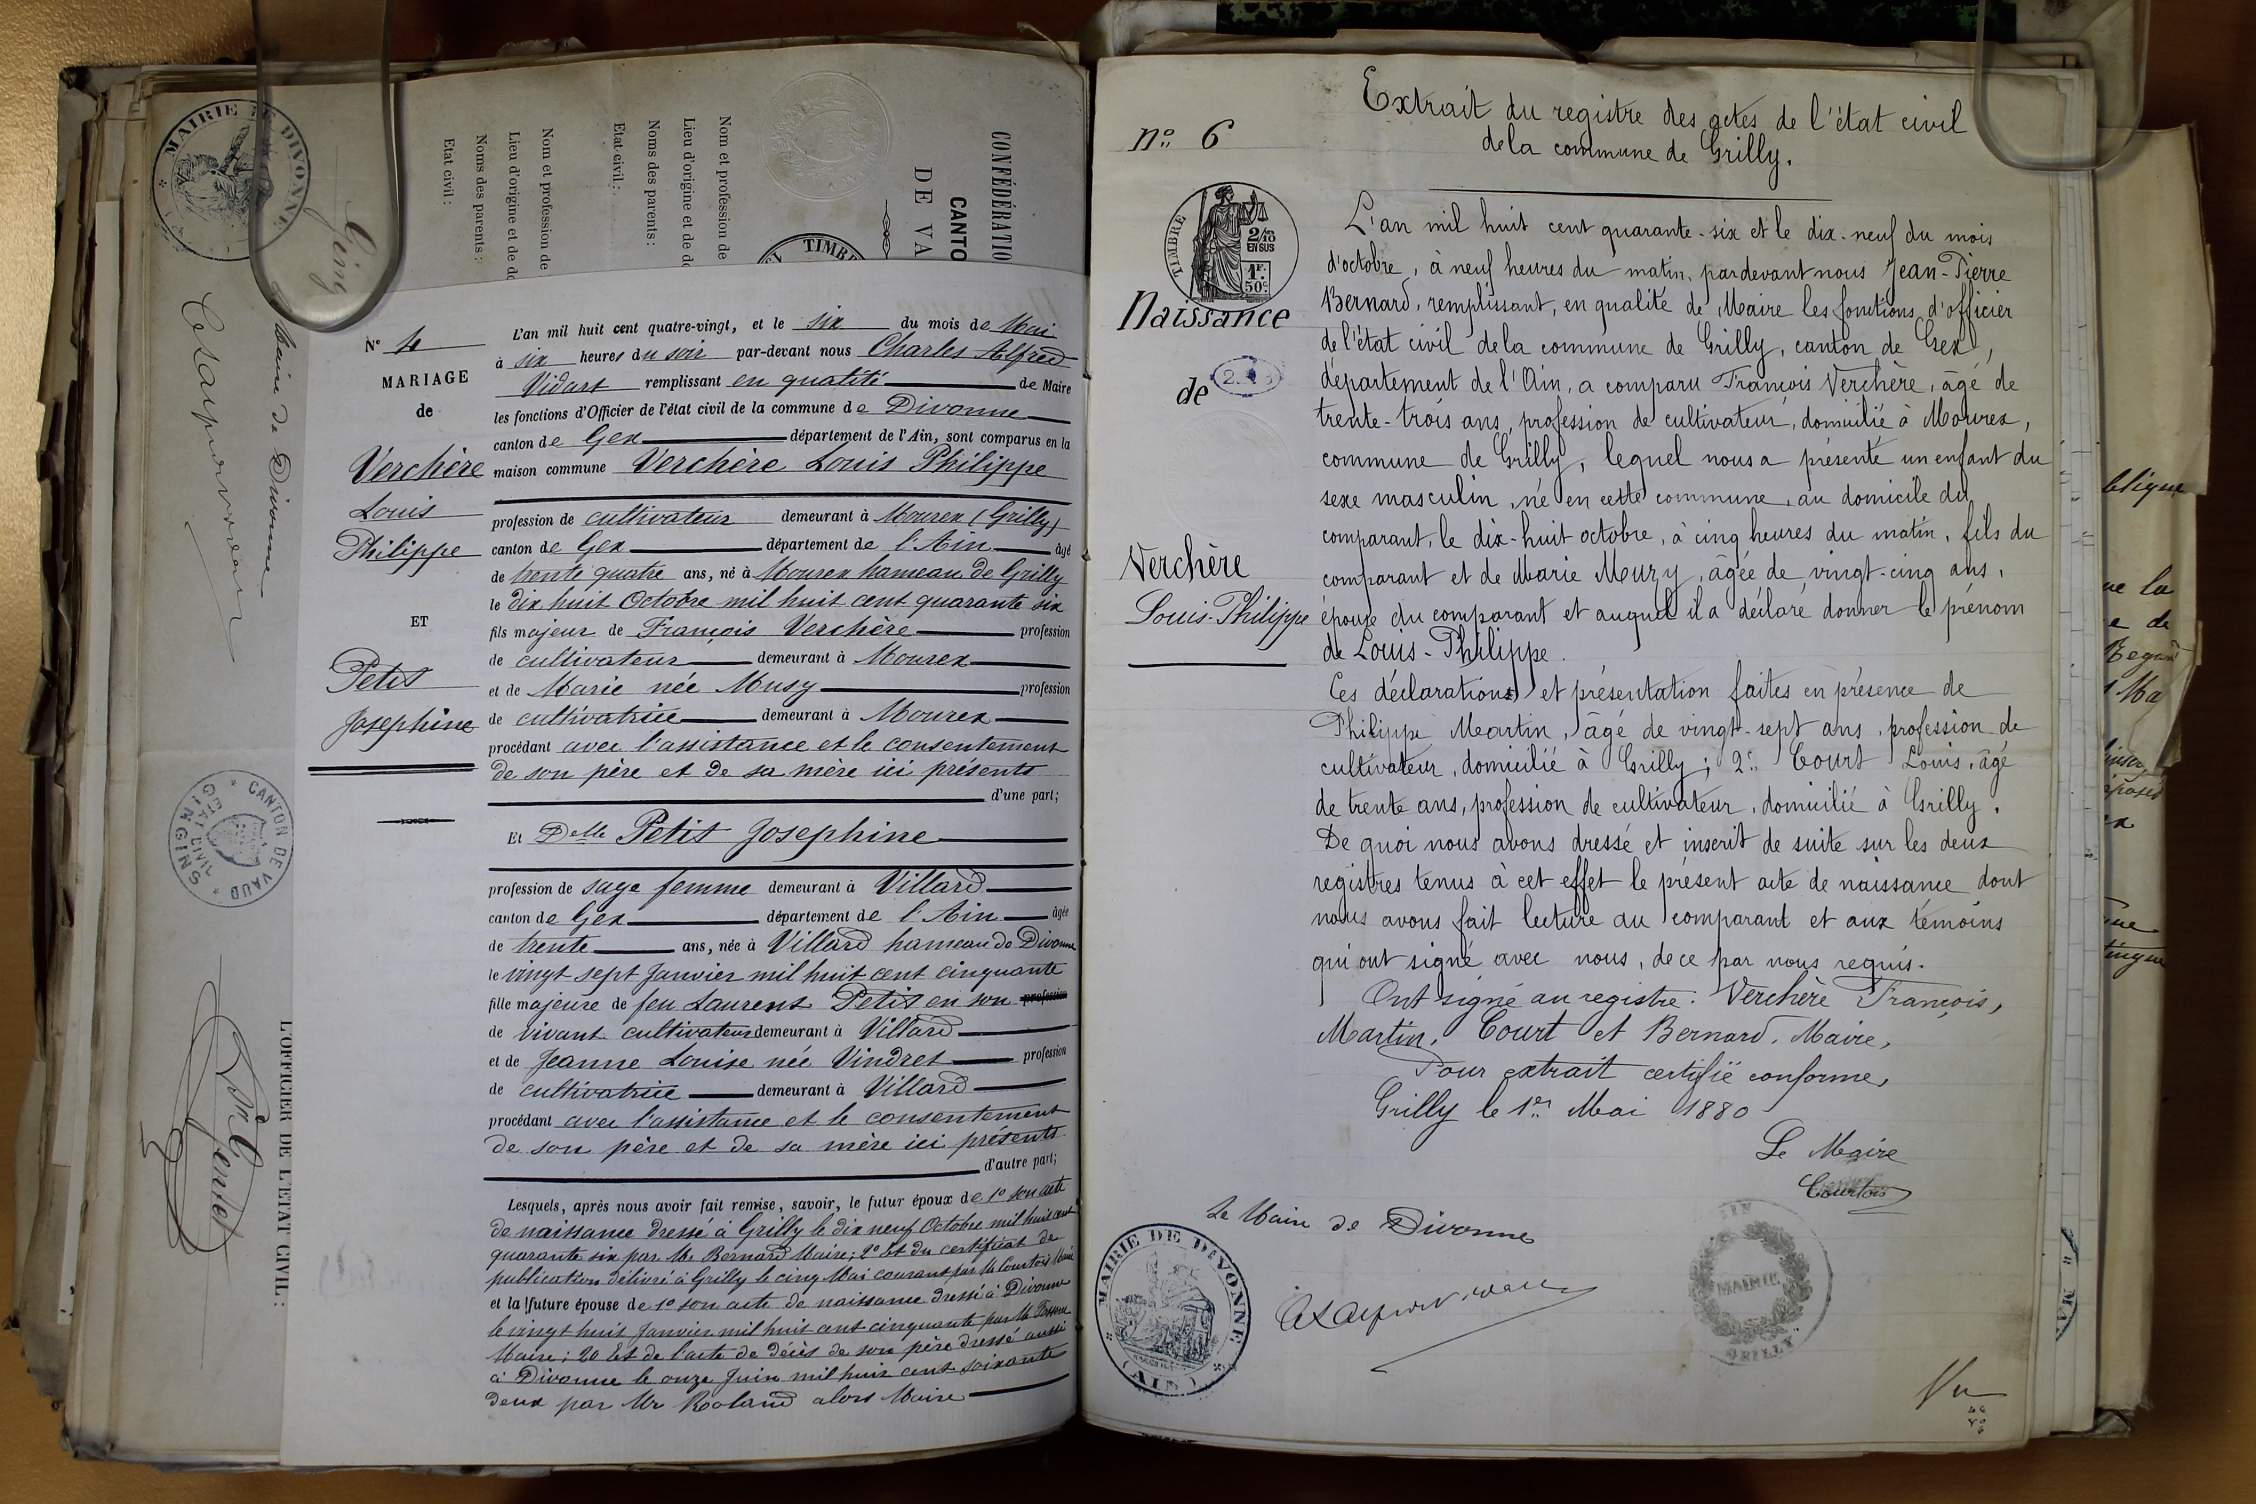 MAIRIE DE DIVONNE
Le Maire de Divonne
CANTON DE VAUD
ETAT CIVIL
GINGINS
L'OFFICIER DE L'ETAT CIVIL :
CONFÉDÉRATIO
CANTO
DE VA
TIMBR
Nom et profession de
Lieu d'origine et de do
Noms des parents :
Etat civil :
Nom et profession de
Lieu d'origine et de do
Noms des parents :
Etat civil :
Ging
N° 4
MARIAGE
de
Verchère
Louis
Philippe
ET
Petit
Josephine
L'an mil huit cent quatre-vingt, et le six du mois de Mai
à six heures du soir par-devant nous Charles Alfred
Vidart remplissant en qualité de Maire
les fonctions d'Officier de l'état civil de la commune de Divonne
canton de Gex département de l'Ain, sont comparus en la
maison commune Verchère Louis Philippe
profession de cultivateur demeurant à Mourex (Grilly)
canton de Gex département de l'Ain âgé
de trente quatre ans, né à Mourex hameau de Grilly
le dix huit Octobre mil huit cent quarante six
fils majeur de François Verchère profession
de cultivateur demeurant à Mourex
et de Marie née Musy profession
de cultivatrice demeurant à Mourex
procédant avec l'assistance et le consentement
de son père et de sa mère ici présents
d'une part;
Et Delle Petit Josephine
profession de sage femme demeurant à Villard
canton de Gex département de l'Ain âgée
de trente ans, née à Villard hameau de Divonne
le vingt sept Janvier mil huit cent cinquante
fille majeure de feu Laurent Petit en son profession
de vivant cultivateur demeurant à Villard
et de Jeanne Louise née Vindret profession
de cultivatrice demeurant à Villard
procédant avec l'assistance et le consentement
de son père et de sa mère ici présents
d'autre part;
Lesquels, après nous avoir fait remise, savoir, le futur époux de 1° son acte
de naissance dressé à Grilly le dix neuf Octobre mil huit cent
quarante six par Mr Bernard Maire; 2° Et du certificat de
publication délivré à Grilly le cinq Mai courant par Mr Courtois Maire
et la future épouse de 1° son acte de naissance dressé à Divonne
le vingt huit Janvier mil huit cent cinquante par Mr
Maire; 20 Et de l'acte de décès de son père dressé aussi
à Divonne le onze Juin mil huit cent soixante
deux par Mr Roland alors Maire
Extrait du registre des actes de l'état civil
de la commune de Grilly.
n° 6
TIMBRE
2/10
EN SUS
1F.
50c.
Naissance
de
Verchère
Louis-Philippe
L'an mil huit cent quarante-six et le dix-neuf du mois
d'octobre, à neuf heures du matin, pardevant nous Jean-Pierre
Bernard, remplissant, en qualité de Maire les fonctions d'officier
de l'état civil de la commune de Grilly, canton de Gex,
département de l'Ain, a comparu François Verchère, âgé de
trente-trois ans, profession de cultivateur, domicilié à Mourex,
commune de Grilly, lequel nous a présenté un enfant du
sexe masculin, né en cette commune, au domicile du
comparant, le dix-huit octobre, à cinq heures du matin, fils du
comparant et de Marie Muzy, âgée de vingt-cinq ans,
épouse du comparant et auquel il a déclaré donner le prénom
de Louis-Philippe.
Ces déclarations et présentation faites en présence de
Philippe Martin, âgé de vingt-sept ans, profession de
cultivateur, domicilié à Grilly; 2° Court Louis, âgé
de trente ans, profession de cultivateur, domicilié à Grilly.
De quoi nous avons dressé et inscrit de suite sur les deux
registres tenus à cet effet le présent acte de naissance dont
nous avons fait lecture au comparant et aux témoins
qui ont signé avec nous, de ce par nous requis.
Ont signé au registre: Verchère François,
Martin, Court et Bernard, Maire,
Pour extrait certifié conforme,
Grilly le 1er Mai 1880
Le Maire
Courtois
Le Maire de Divonne
MAIRIE DE DIVONNE
(AIN)
MAIRIE
GRILLY
Vu